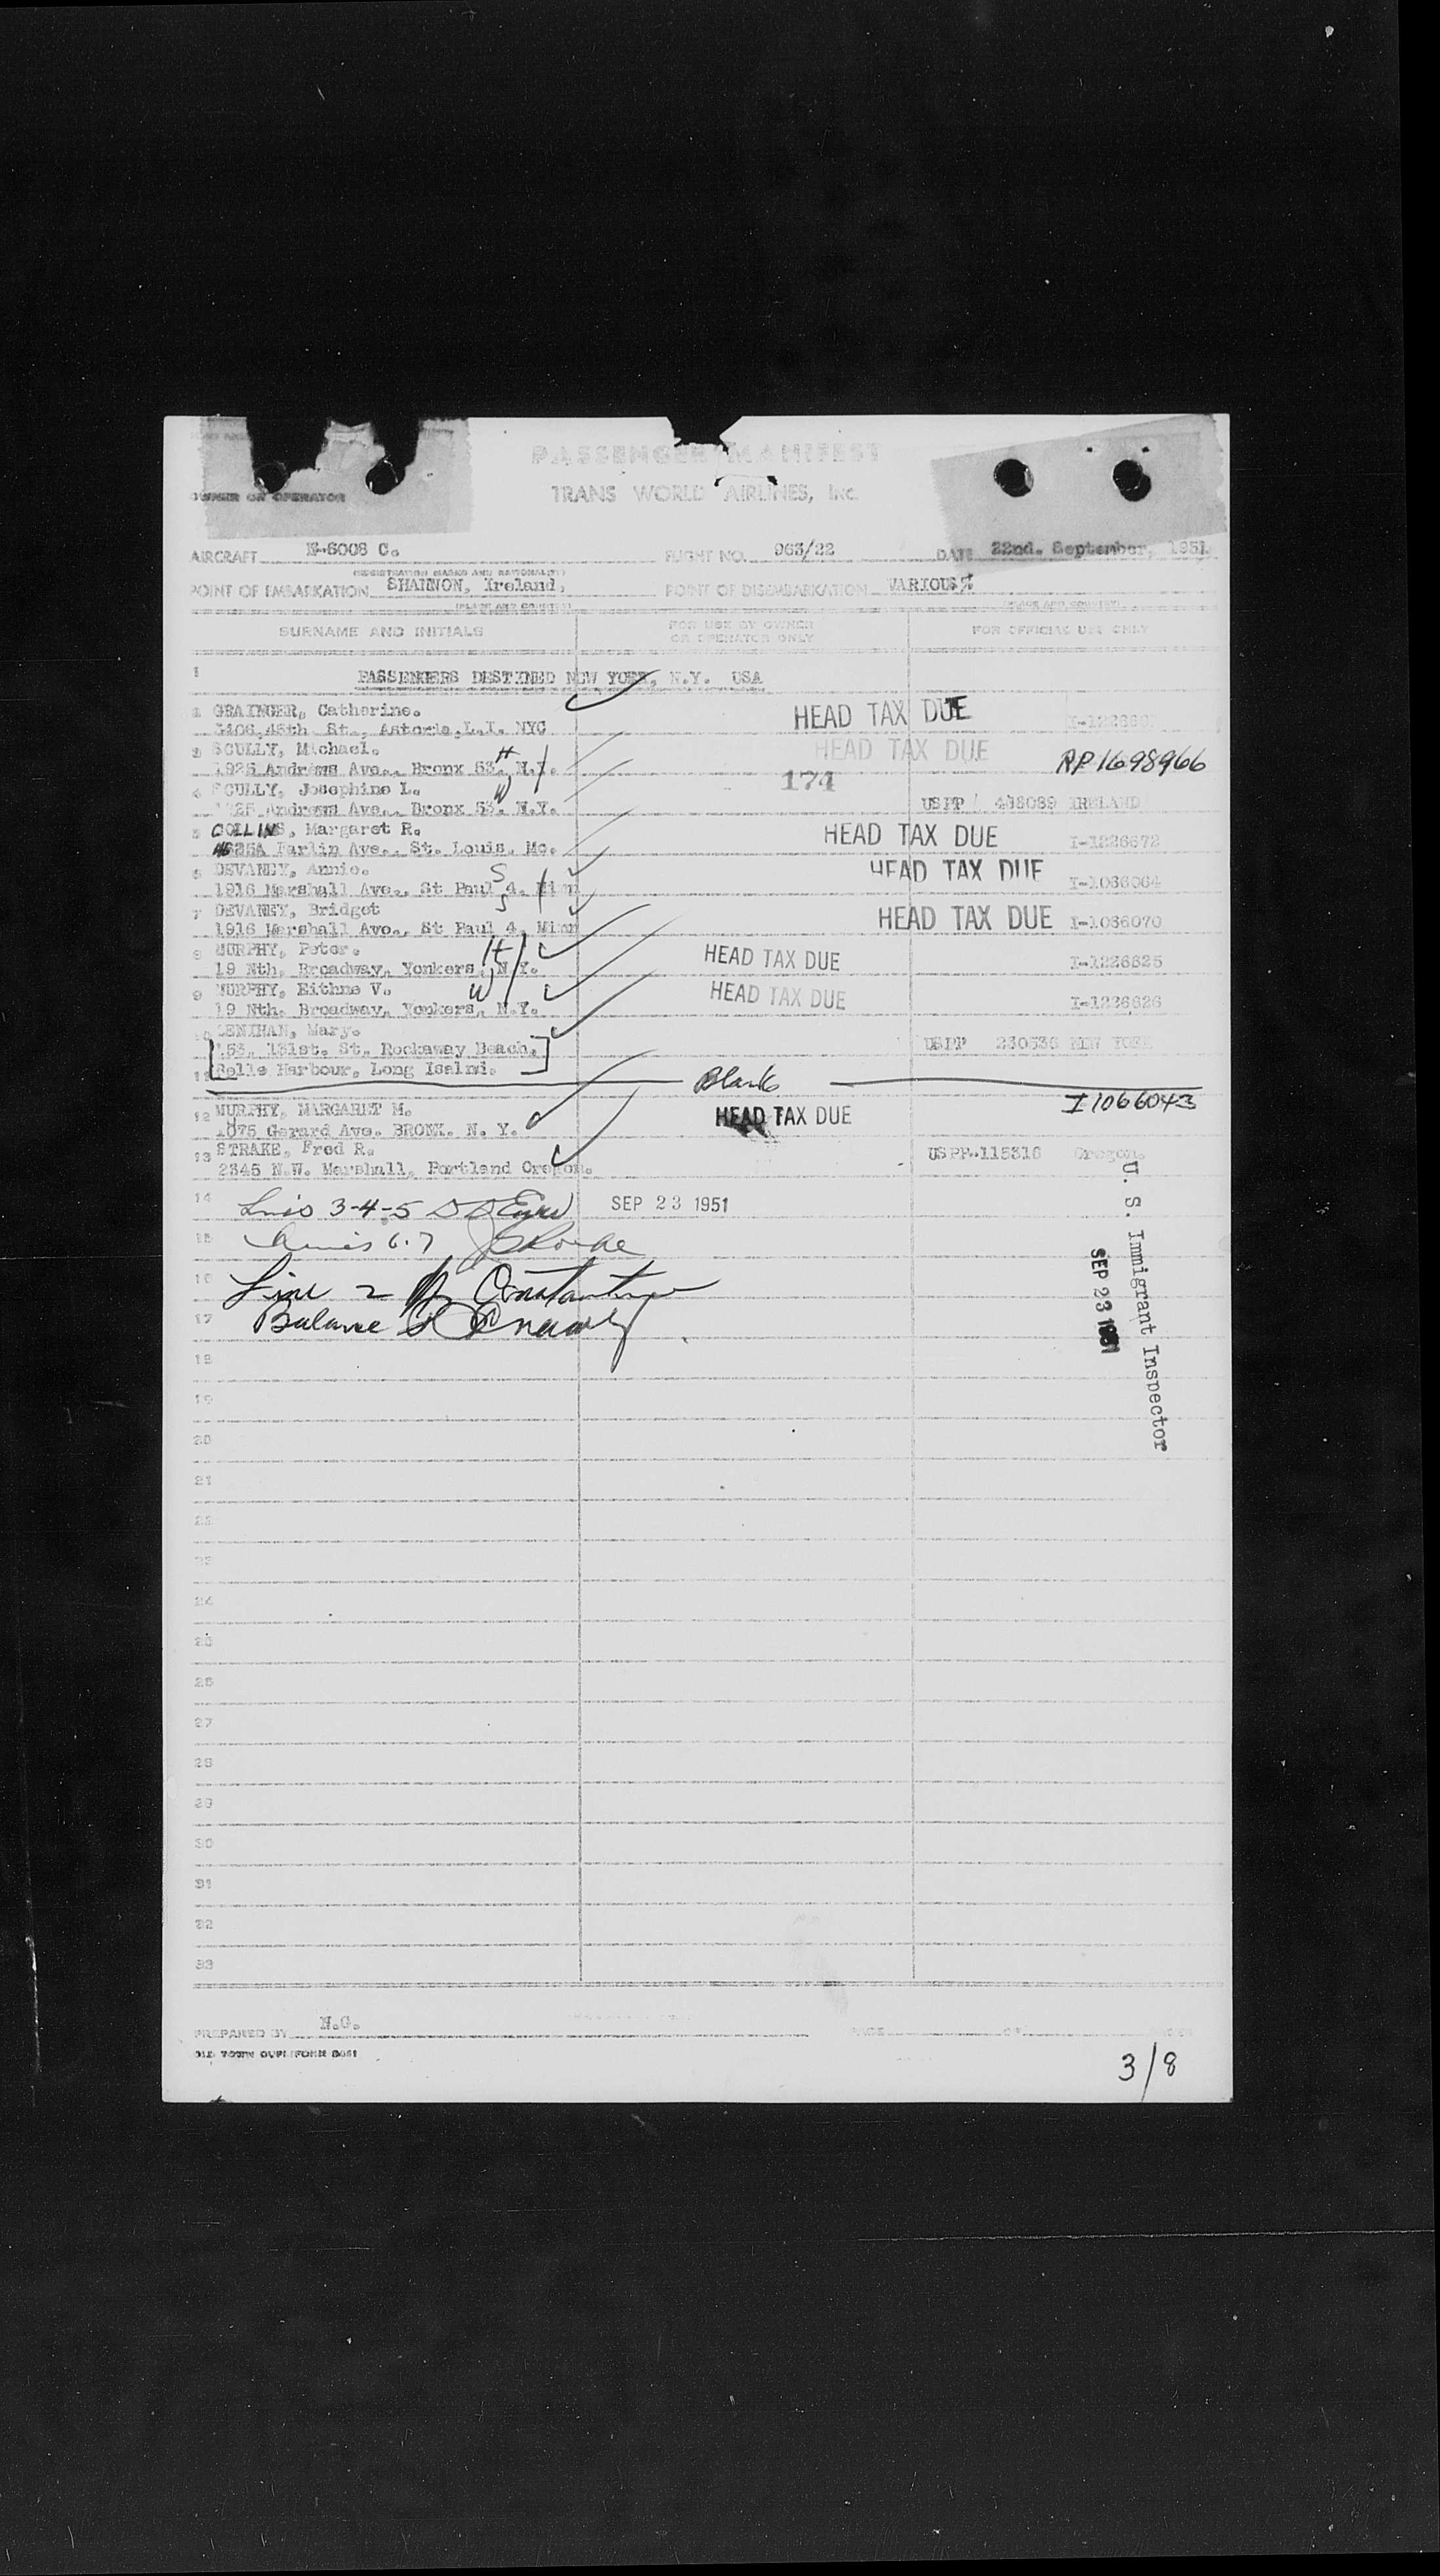 PASSENGER MANIFEST
OWNER OR OPERATOR
TRANS WORLD AIRLINES, Inc.
AIRCRAFT N-6008 C. FLIGHT NO. 963/22 DATE 22nd. September, 1951.
(REGISTRATION MARKS AND NATIONALITY)
POINT OF EMBARKATION SHANNON, Ireland. POINT OF DISEMBARKATION VARIOUS
(PLACE AND COUNTRY) (PLACE AND COUNTRY)
SURNAME AND INITIALS FOR USE BY OWNER OR OPERATOR ONLY FOR OFFICIAL USE ONLY
1 PASSENGERS DESTINED NEW YORK, N.Y. USA
2 GRAINGER, Catherine. HEAD TAX DUE
3406,45th St., Astoria,L.I. NYC
3 SCULLY, Michael. H HEAD TAX DUE RP1698966
1925 Andrews Ave., Bronx 53. N.Y.
4 SCULLY, Josephine L. W 174
1925 Andrews Ave., Bronx 53. N.Y. USPP 488089 IRELAND
5 COLLINS, Margaret R. HEAD TAX DUE I-1226672
Parlin Ave., St. Louis, Mo.
6 DEVANEY, Annie. S HEAD TAX DUE I-1086064
1916 Marshall Ave., St Paul 4. Minn
7 DEVANEY, Bridget S HEAD TAX DUE I-1086070
1916 Marshall Ave., St Paul 4, Minn
8 MURPHY, Peter. H HEAD TAX DUE I-1226625
19 Nth. Broadway, Yonkers, N.Y.
9 MURPHY, Eithne V. W HEAD TAX DUE I-1226626
19 Nth. Broadway, Yonkers, N.Y.
10 LENIHAN, Mary.
153, 131st. St. Rockaway Beach. USPP 230536 NEW YORK
11 Belle Harbour, Long Isalnd. Blank
12 MURPHY, MARGARET M. HEAD TAX DUE I1066043
1075 Gerard Ave. BRONX. N. Y.
13 STRAKE, Fred R. USPP-115316 Oregon.
2345 N.W. Marshall, Portland Oregon.
14 Lines 3-4-5 SEP 23 1951
15 Lines 6.7
16 Line 2 Constantine
17 Balance
U. S. Immigrant Inspector
SEP 23 1951
18
19
20
21
22
23
24
25
26
27
28
29
30
31
32
33
PREPARED BY N.G. PAGE OF
3/8